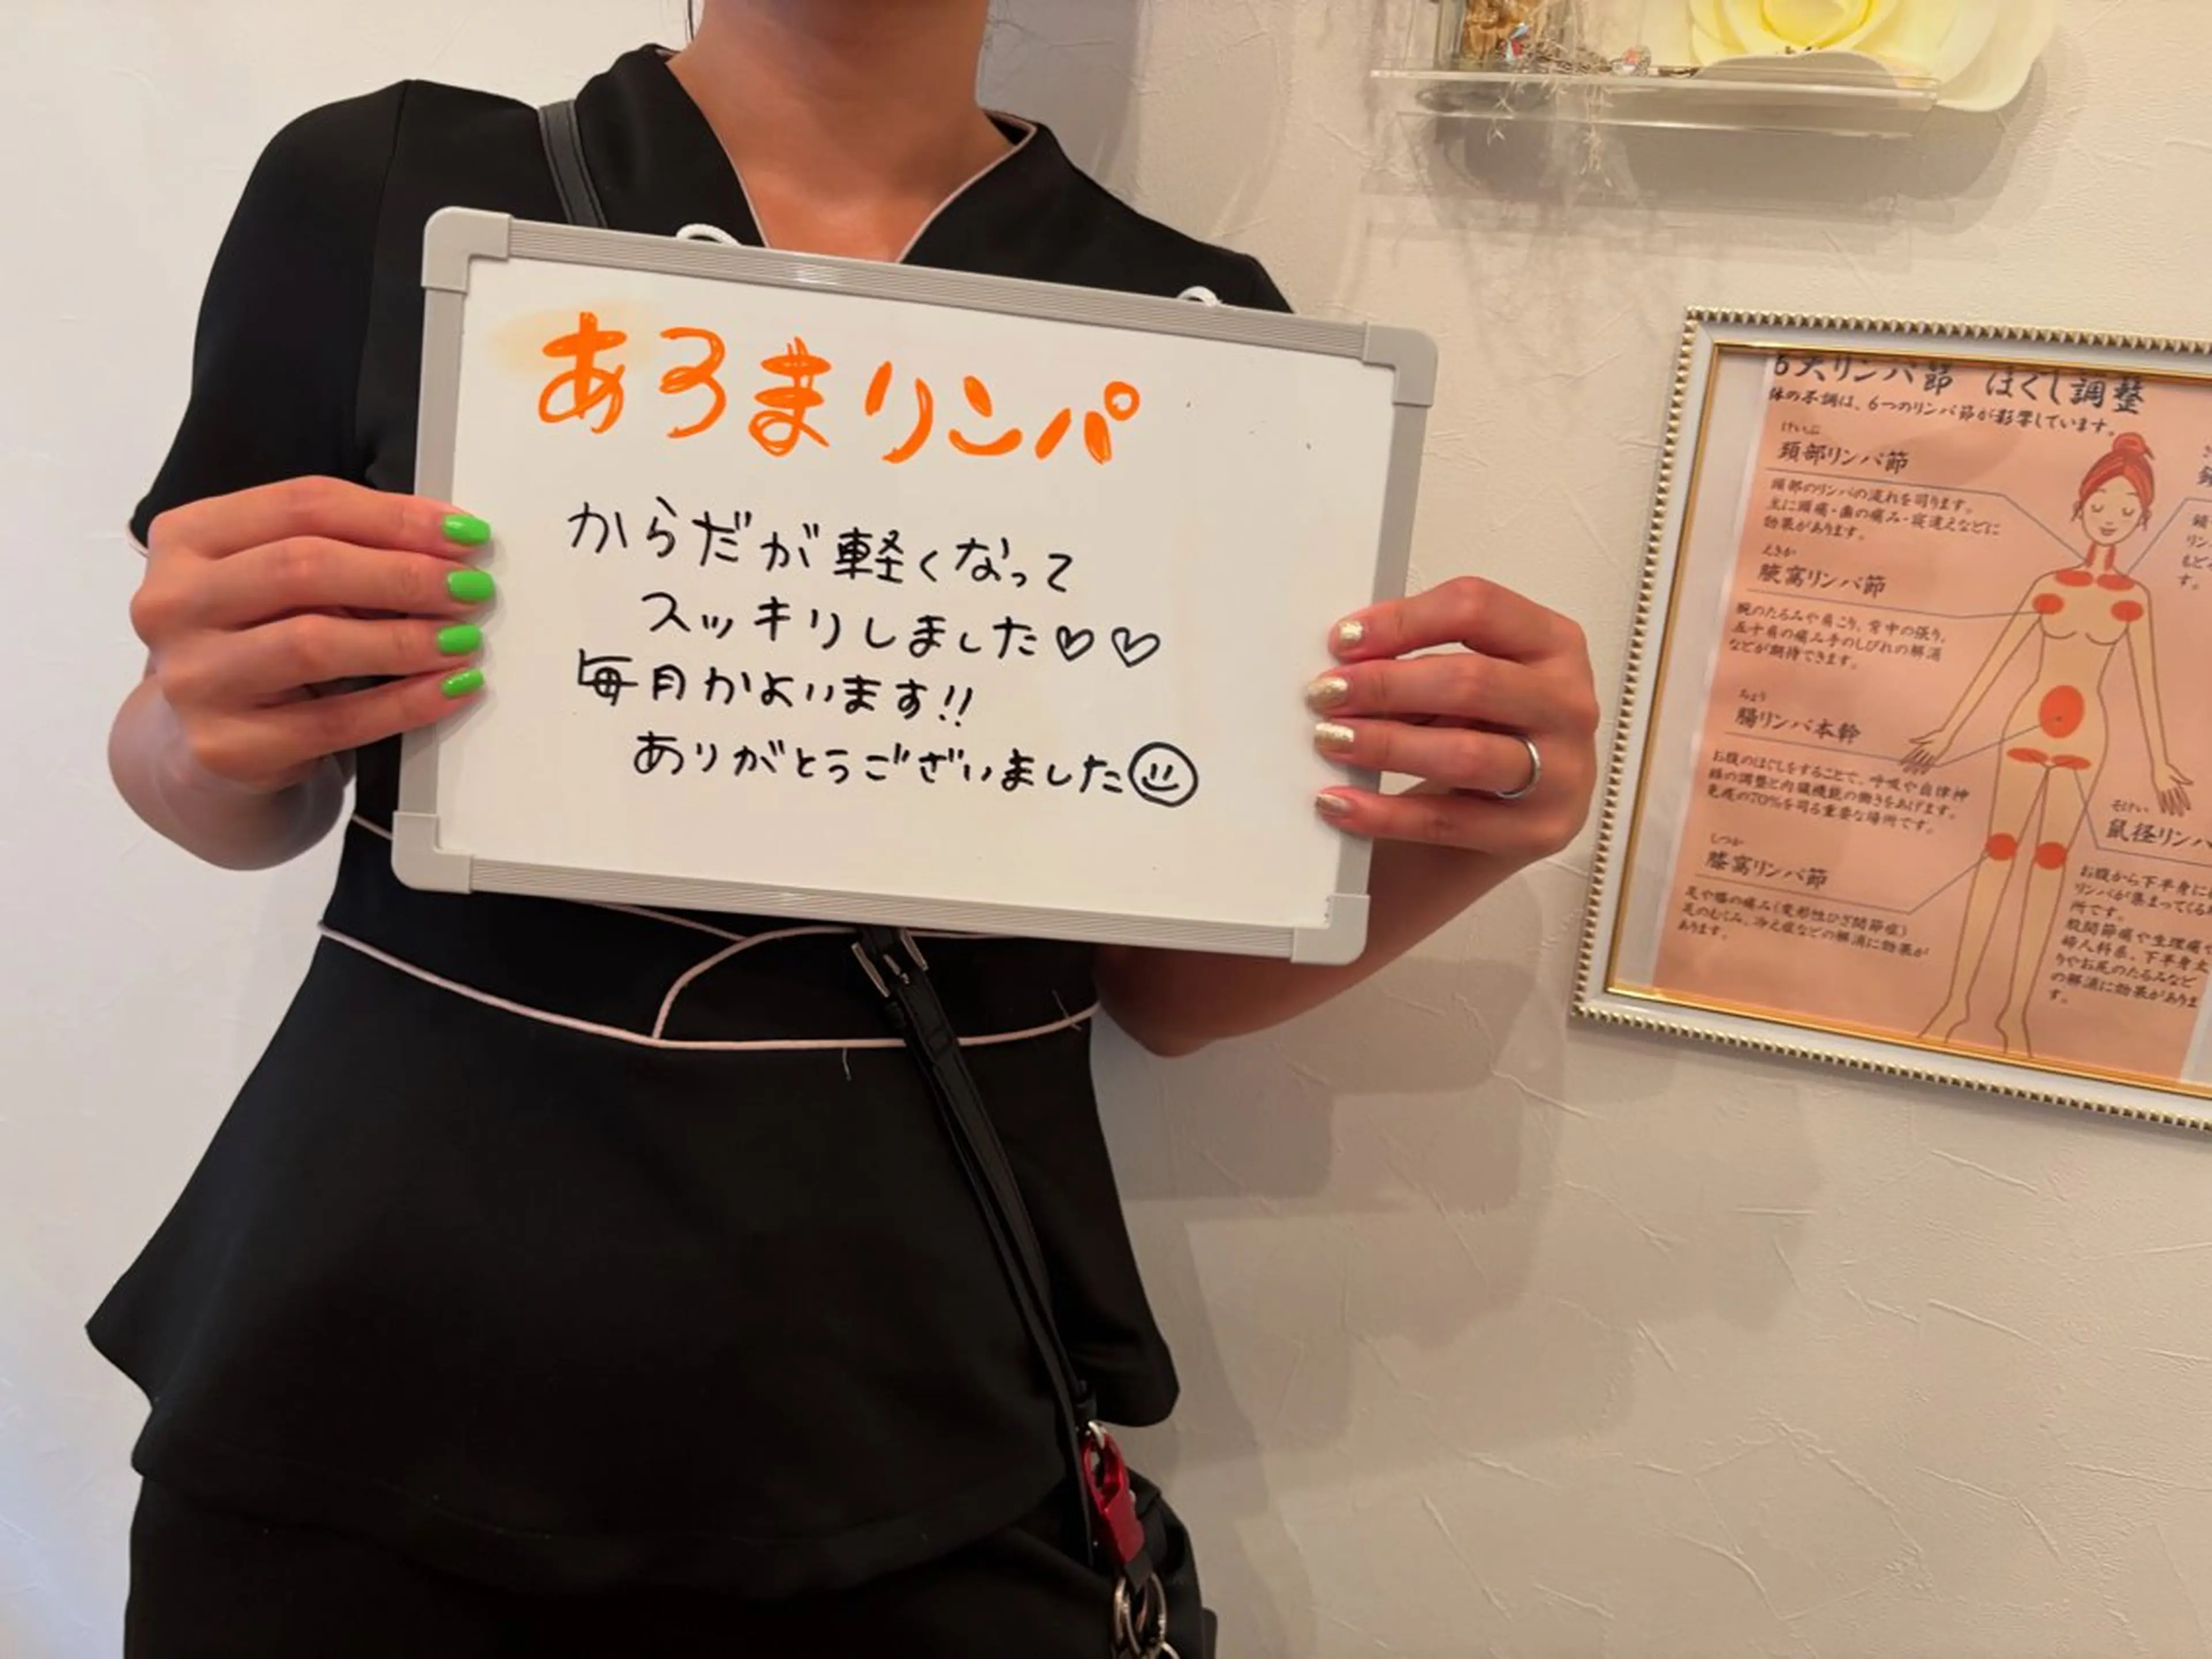 あろまリンパ
からだが軽くなって
スッキリしました♡♡
毎月かよいます!!
ありがとうございました☺
6大リンパ節 ほぐし調整
体の不調は、6つのリンパ節が影響しています。
けいぶ
頚部リンパ節
頭部のリンパの流れを司ります。
主に頭痛・歯の痛み・寝違えなどに
効果があります。
えきか
腋窩リンパ節
腕のたるみや肩こり、背中の張り、
五十肩の痛み手のしびれの解消
などが期待できます。
ちょう
腸リンパ本幹
お腹のほぐしをすることで、呼吸や自律神
経の調整と内臓機能の働きをあげます。
免疫の70%を司る重要な場所です。
しつか
膝窩リンパ節
足や膝の痛み(変形性ひざ関節症)
足のむくみ、冷え症などの解消に効果が
あります。
そけい
鼠径リンパ
お腹から下半身に
リンパが集まってくる
所です。
股関節痛や生理痛
婦人科系、下半身太
りやお尻のたるみなど
の解消に効果がありま
す。